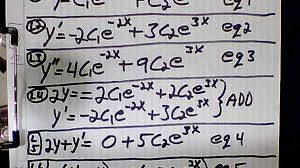 y=C₁e⁻²ˣ+C₂e³ˣ eq1
y'=-2C₁e⁻²ˣ+3C₂e³ˣ eq2
y''=4C₁e⁻²ˣ+9C₂e³ˣ eq3
2y==2C₁e⁻²ˣ+2C₂e³ˣ
y'=-2C₁e⁻²ˣ+3C₂e³ˣ } ADD
2y+y'= 0+5C₂e³ˣ eq4